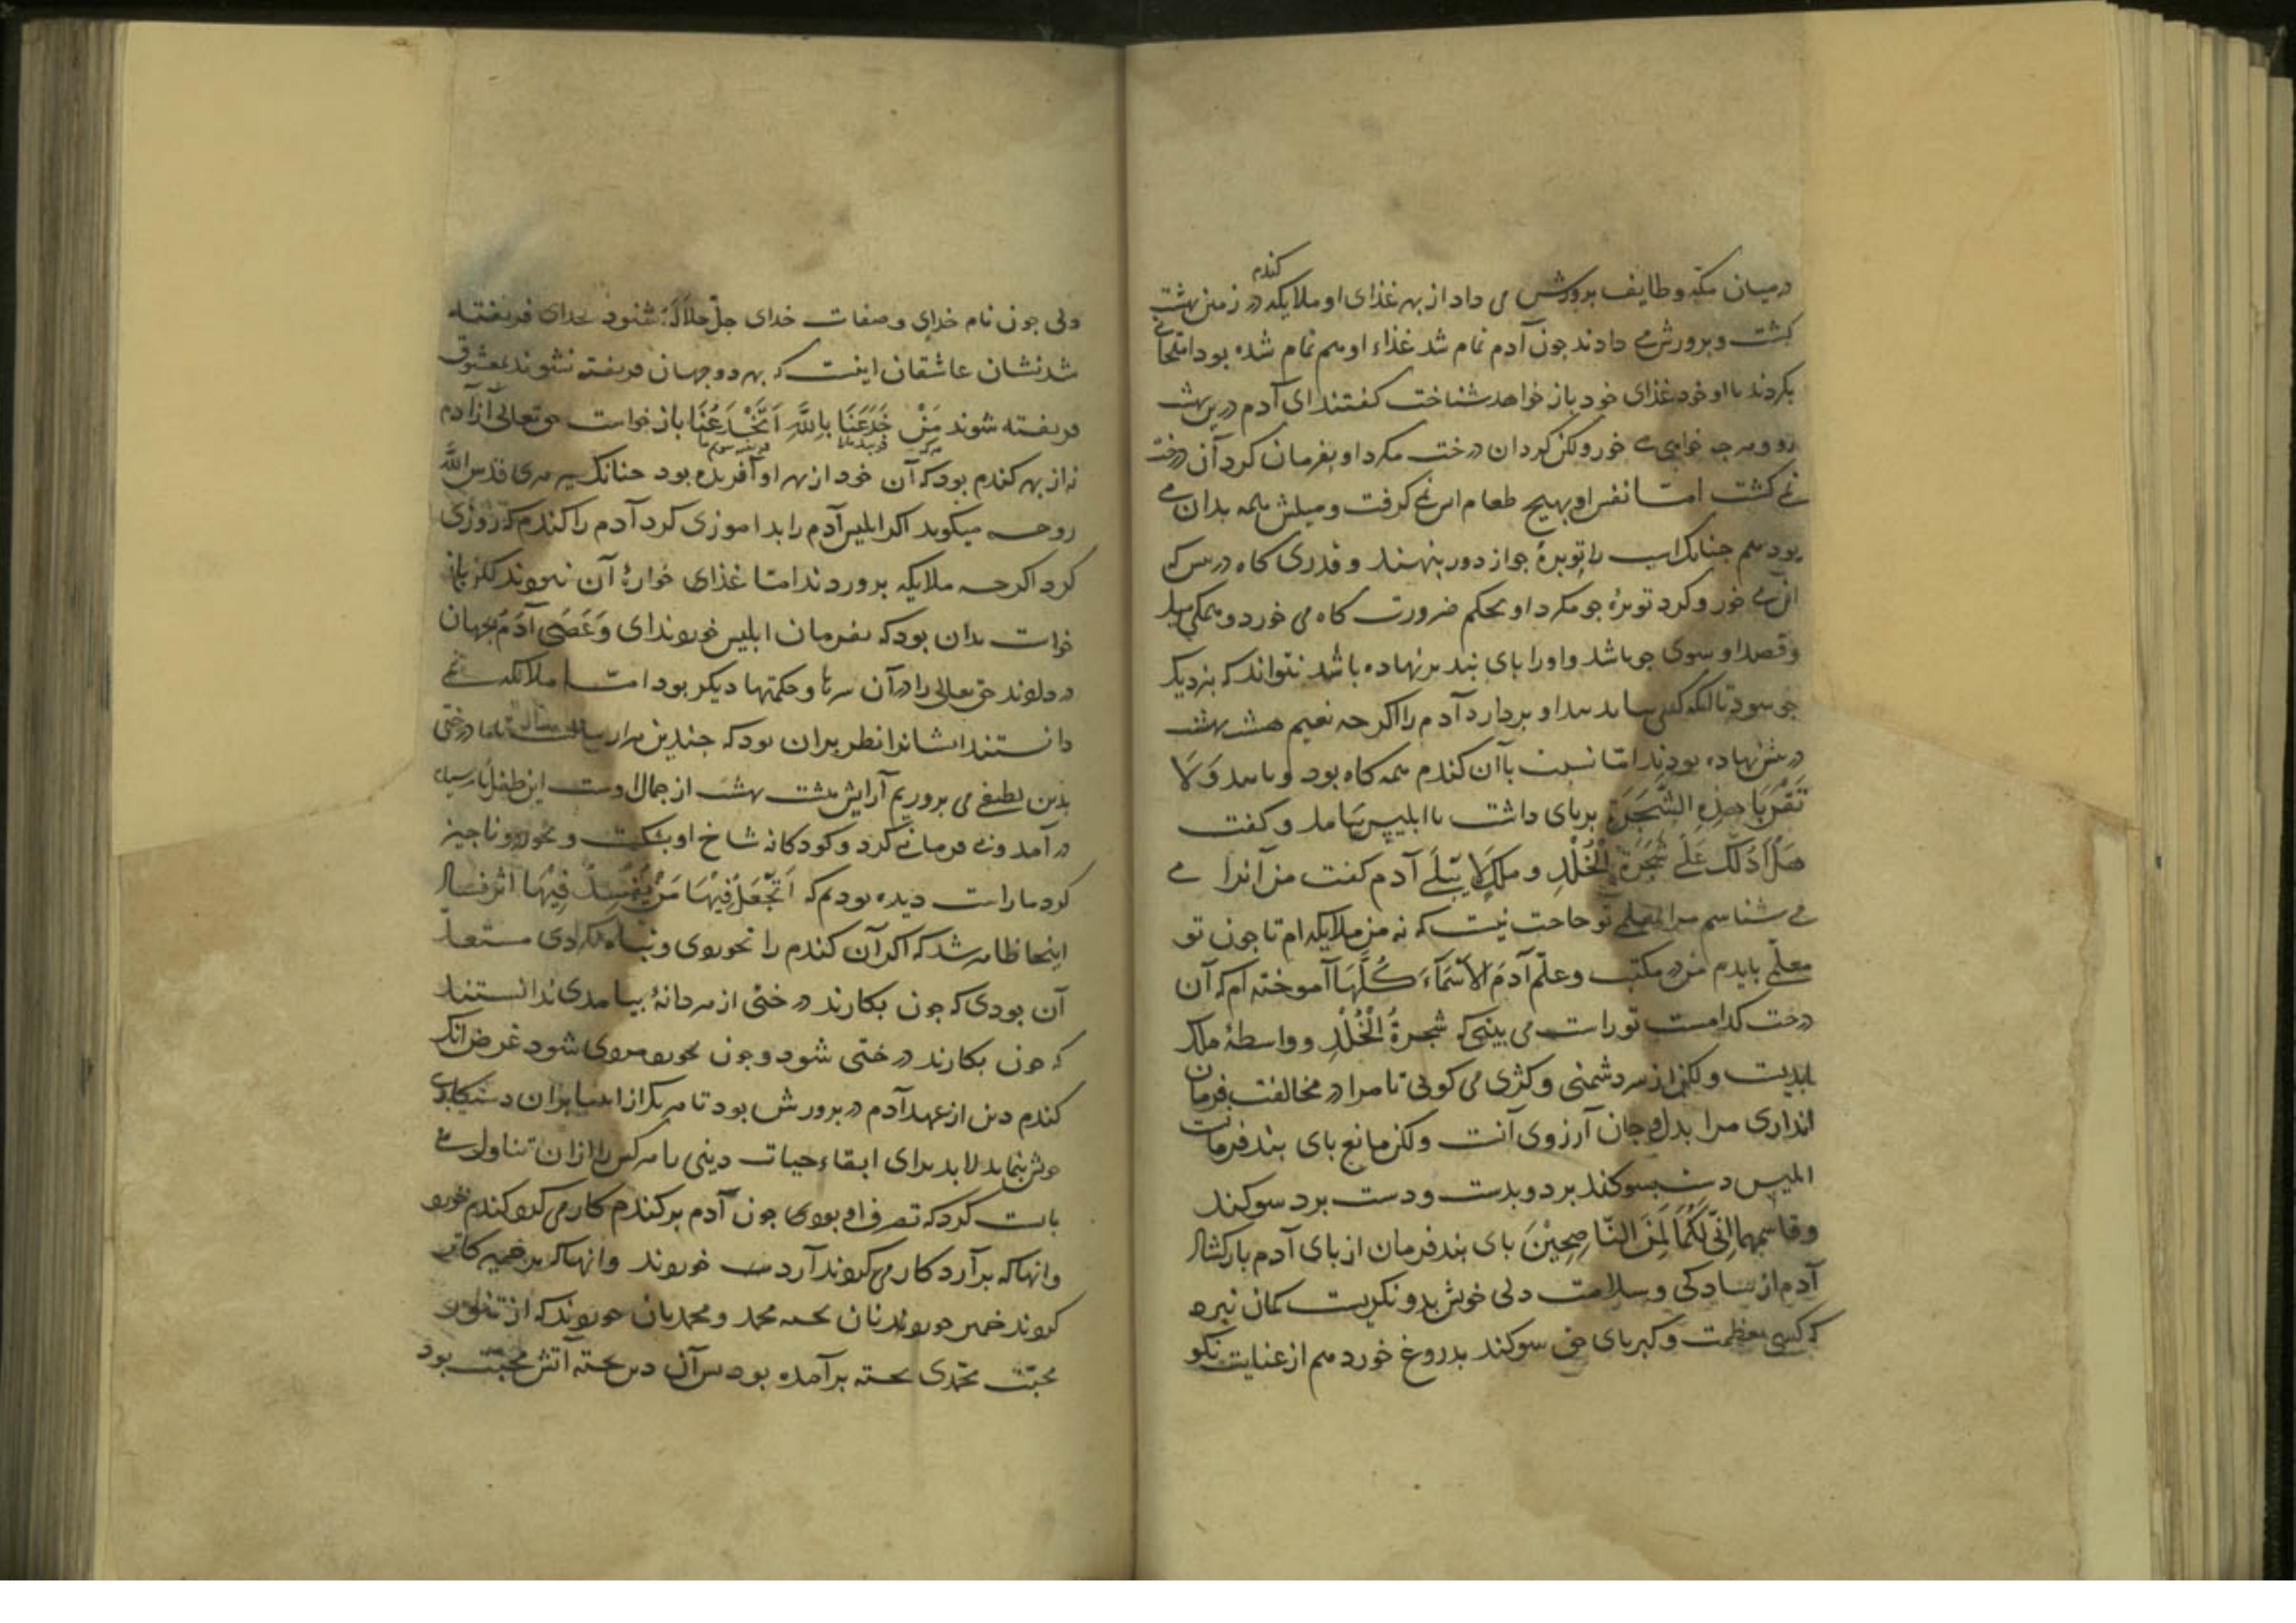 درمیان مکه وطایف برورش می داد از بهر غذای او ملایکه کندم در زمین بهشت
کشت وبرورش می دادند جون آدم تمام شد غذاء او هم تمام شده بود امتحانی
بکردند تا او خود غذای خود باز خواهد شناخت کفتند ای آدم درین بهشت
رو وهرجه خواهی می خور ولکن کرد ان درخت مکرد او بفرمان کرد آن درخت
نمی کشت امّا نفس او بهیج طعام انس نمی کرفت ومیلش همه بدان می
بود همجنانک اسب را توبرهٔ جو از دور بنهند وقدری کاه در بیش که
این می خور وکرد توبرهٔ جو مکرد او بحکم ضرورت کاه می خورد وهمکی میل
وقصد او سوی جو باشد واورا بای بند برنهاده باشد نتواند که بنزدیک
جو شود تا انکه که کسی بیاید بند او بردارد آدم را اکرجه نعیم هشت بهشت
در بیش نهاده بودند امّا نسبت باآن کندم همه کاه بود وبابند وَلَا
تَقْرَبَا هٰذِهِ الشَّجَرَةَ بربای داشت تا ابلیس بیامد وکفت
هَلْ اَدُلُّكَ عَلٰی شَجَرَةِ الْخُلْدِ وملكٍ لَا یَبْلٰی آدم کفت من آنرا می
می شناسم مرا بمعلمی تو حاجت نیست که نه من ملایکه ام تا جون تو
معلمی بایدم من در مکتب وعلّم آدمَ الاَسْمَآءَ كُلَّهَا آموخته ام که آن
درخت کدامست تو راست می بینی که شجرةُ الْخُلْدِ وواسطهٔ ملک
ابدیست ولکن از سر دشمنی وکژی می کویی تا مرا در مخالفت فرمان
اندازی مرا بدل وجان آرزوی آنست ولکن مانع بای بند فرمانست
ابلیس دست بسوکند برد وبدست ودست برد سوکند
وقاسمهما اِنّی لَكُمَا لَمِنَ النَّاصِحِیْنَ بای بند فرمان از بای آدم بازکشاد
آدم از سادکی وسلامت دلی خویش بدو نکریست کمان نبرد
که کسی بعظمت وکبریای حق سوکند بدروغ خورد هم از عنایت نکو
دلی جون نام خدای وصفات خدای جلّ جلاله شنود بخدای فریفته
شد نشان عاشقان اینست که بهر دو جهان فریفته نشوند بمعشوق
فریفته شوند مَنْ خَدَعَنَا بِاللّٰهِ اَنْخَدَعْنَا بازخواست حق تعالی از آدم
نه از بهر کندم بود که آن خود از بهر او آفریده بود جنانک بیر هری قدس اللّٰه
روحه میکوید اکر ابلیس آدم را بدآموزی کرد آدم را کندم که روزی
کرد اکرجه ملایکه بروردند امّا غذای خوارهٔ آن نبودند لکن باز
خواست بدان بود که بفرمان ابلیس خورد ندای وَعَصٰی آدَمُ بجهان
در دادند حق تعالی را در آن سرها وحکمتها دیکر بود امّا ملائکه نمی
دانستند ایشانرا نظر بران بود که جندین هزار سالست تا ما درختی
بدین لطیفی می بروریم آرایش هشت بهشت از جمال اوست این طفل نارسیده
درآمد وبی فرمانی کرد وکودکانه شاخ او بشکست وبخورد وناجیز
کرد ما راست دیده بودیم که اَتَجْعَلُ فِیْهَا مَنْ یُفْسِدُ فِیْهَا اثر فساد
اینجا ظاهر شد که اکر آن کندم را نخوردی وتباه نکردی مستعد
آن بودی که جون بکارند درختی از هر دانهٔ بیامدی ندانستند
که جون بکارند درختی شود وجون بخورد مردی شود غرض انک
کندم دین از عهد آدم در برورش بود تا هریک از انبیا بران دستکاری
خویش بنماید لابد برای ابقاء حیات دینی تا هرکس را ازان تناول می
بایست کرد که تصرف او بودی جون آدم بر کندم کار می کرد کندم خورد
وانها که بر آرد کار می کردند آرد می خوردند وانها که بر خمیر کار
کردند خمیر خوردند نان بخته محمد ومحمدیان خوردند که از تنور
محبّت محمّدی بخته برآمده بود بس آن دین بخته آتش محبّت بود